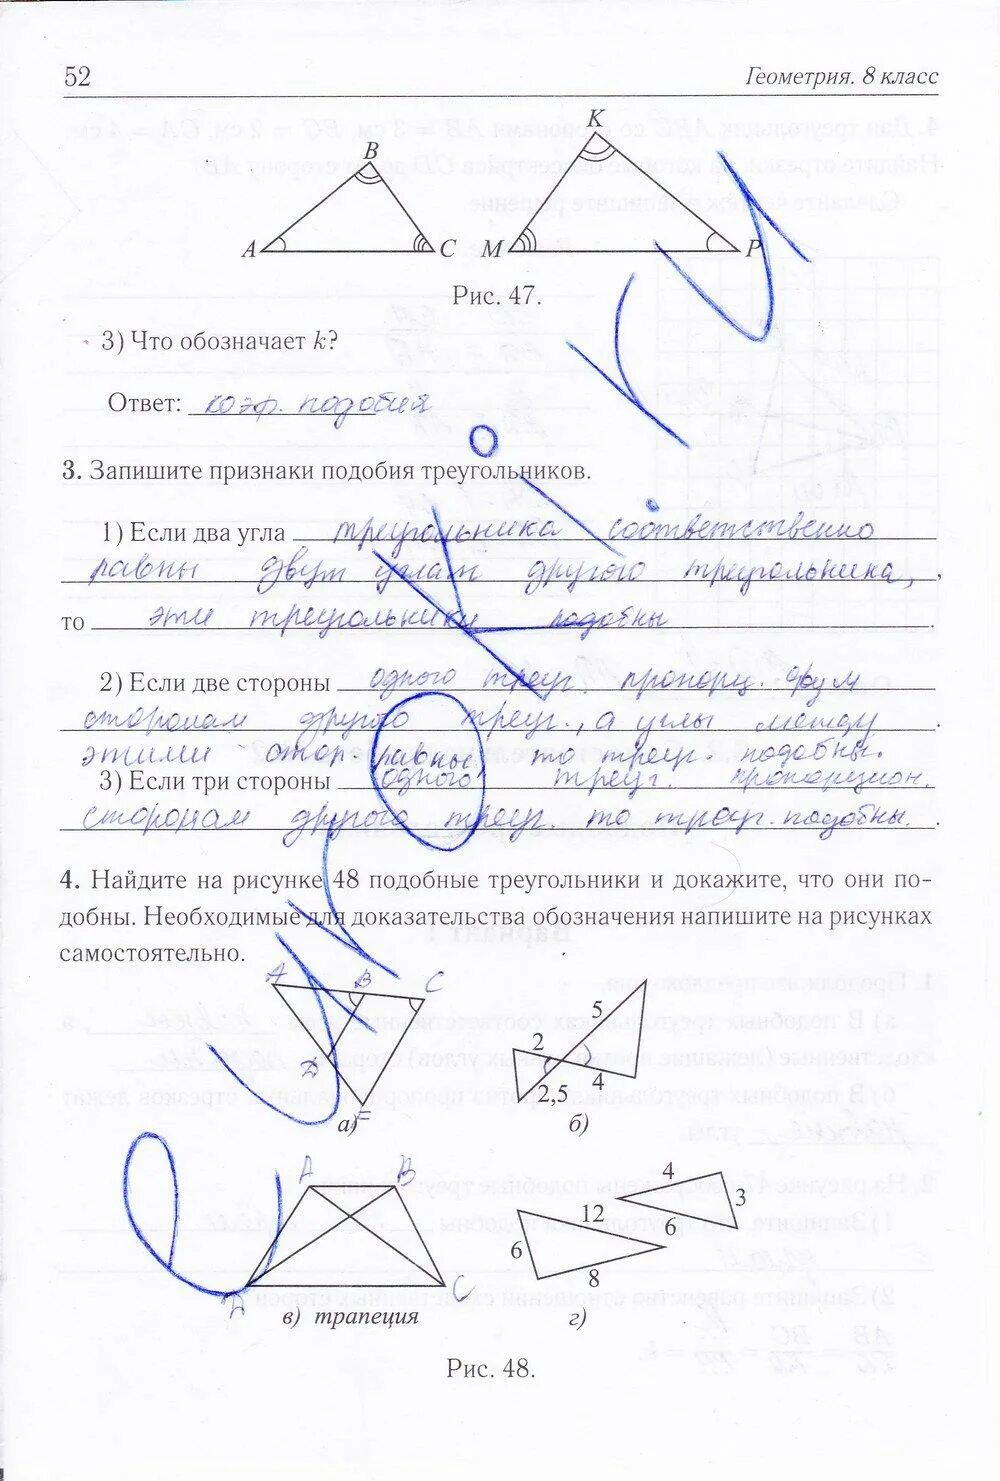 52
Геометрия. 8 класс
B
K
A
C
M
P
Рис. 47.
3) Что обозначает k?
Ответ: коэф. подобия
3. Запишите признаки подобия треугольников.
1) Если два угла треугольника соответственно
равны двум углам другого треугольника,
то эти треугольники подобны.
2) Если две стороны одного треуг. пропорц. двум
сторонам другого треуг., а углы между
этими стор равны, то треуг. подобны.
3) Если три стороны одного треуг. пропорцион.
сторонам другого треуг. то треуг. подобны.
4. Найдите на рисунке 48 подобные треугольники и докажите, что они по-
добны. Необходимые для доказательства обозначения напишите на рисунках
самостоятельно.
A
B
C
D
E
а)
5
2
4
2,5
б)
A
B
D
C
в) трапеция
4
3
12
6
6
8
г)
Рис. 48.
euroki.ru